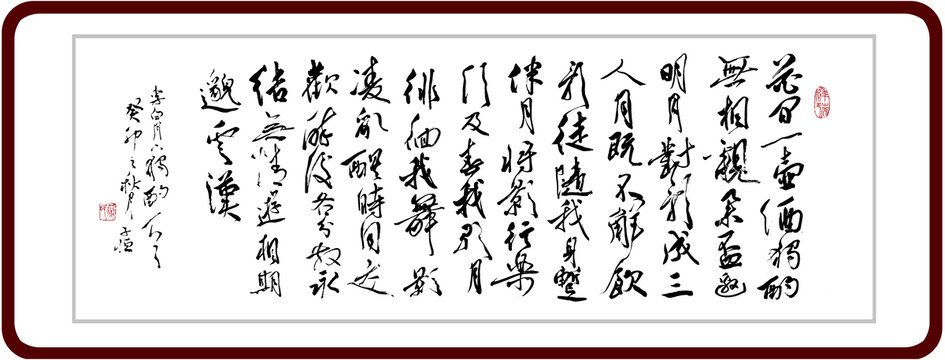 花間一壺酒獨酌
無相親舉盃邀
明月對影成三
人月既不解飲
影徒隨我身暫
伴月將影行樂
須及春我歌月
徘徊我舞影
凌亂醒時同交
歡醉後各分散永
結無情遊相期
邈雲漢
李白月下獨酌
癸卯之秋月